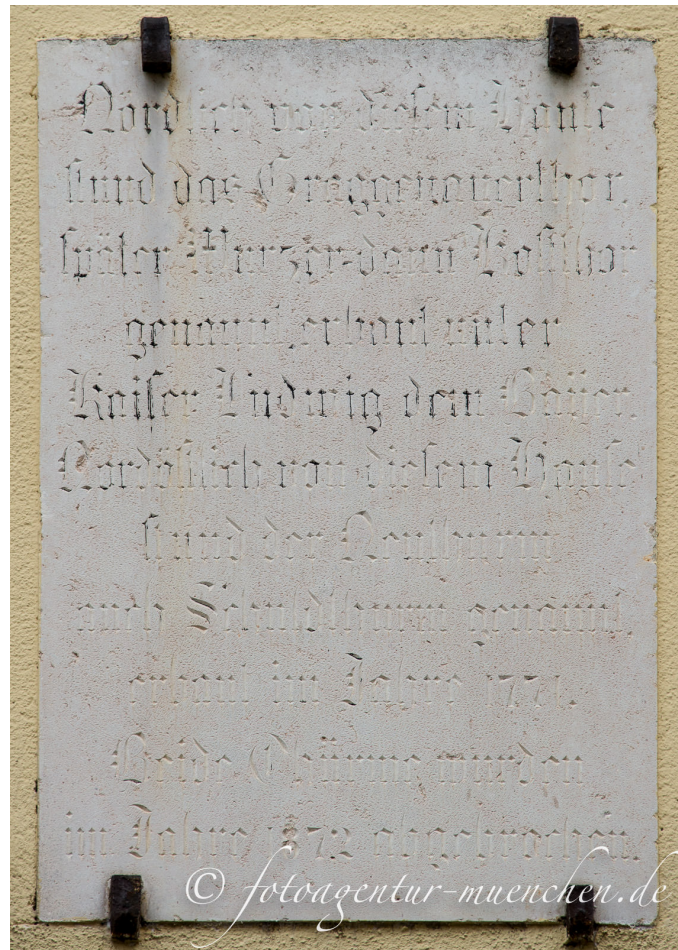 Nördlich von diesem Hause
stund das Graggenauerthor,
später Wurzer=dann Kostthor
genannt, erbaut unter
Kaiser Ludwig dem Bayer.
Nordöstlich von diesem Hause
stund der Neuthurm
auch Schuldthurm genannt,
erbaut im Jahre 1771.
Beide Thürme wurden
im Jahre 1872 abgebrochen.
© fotoagentur-muenchen.de